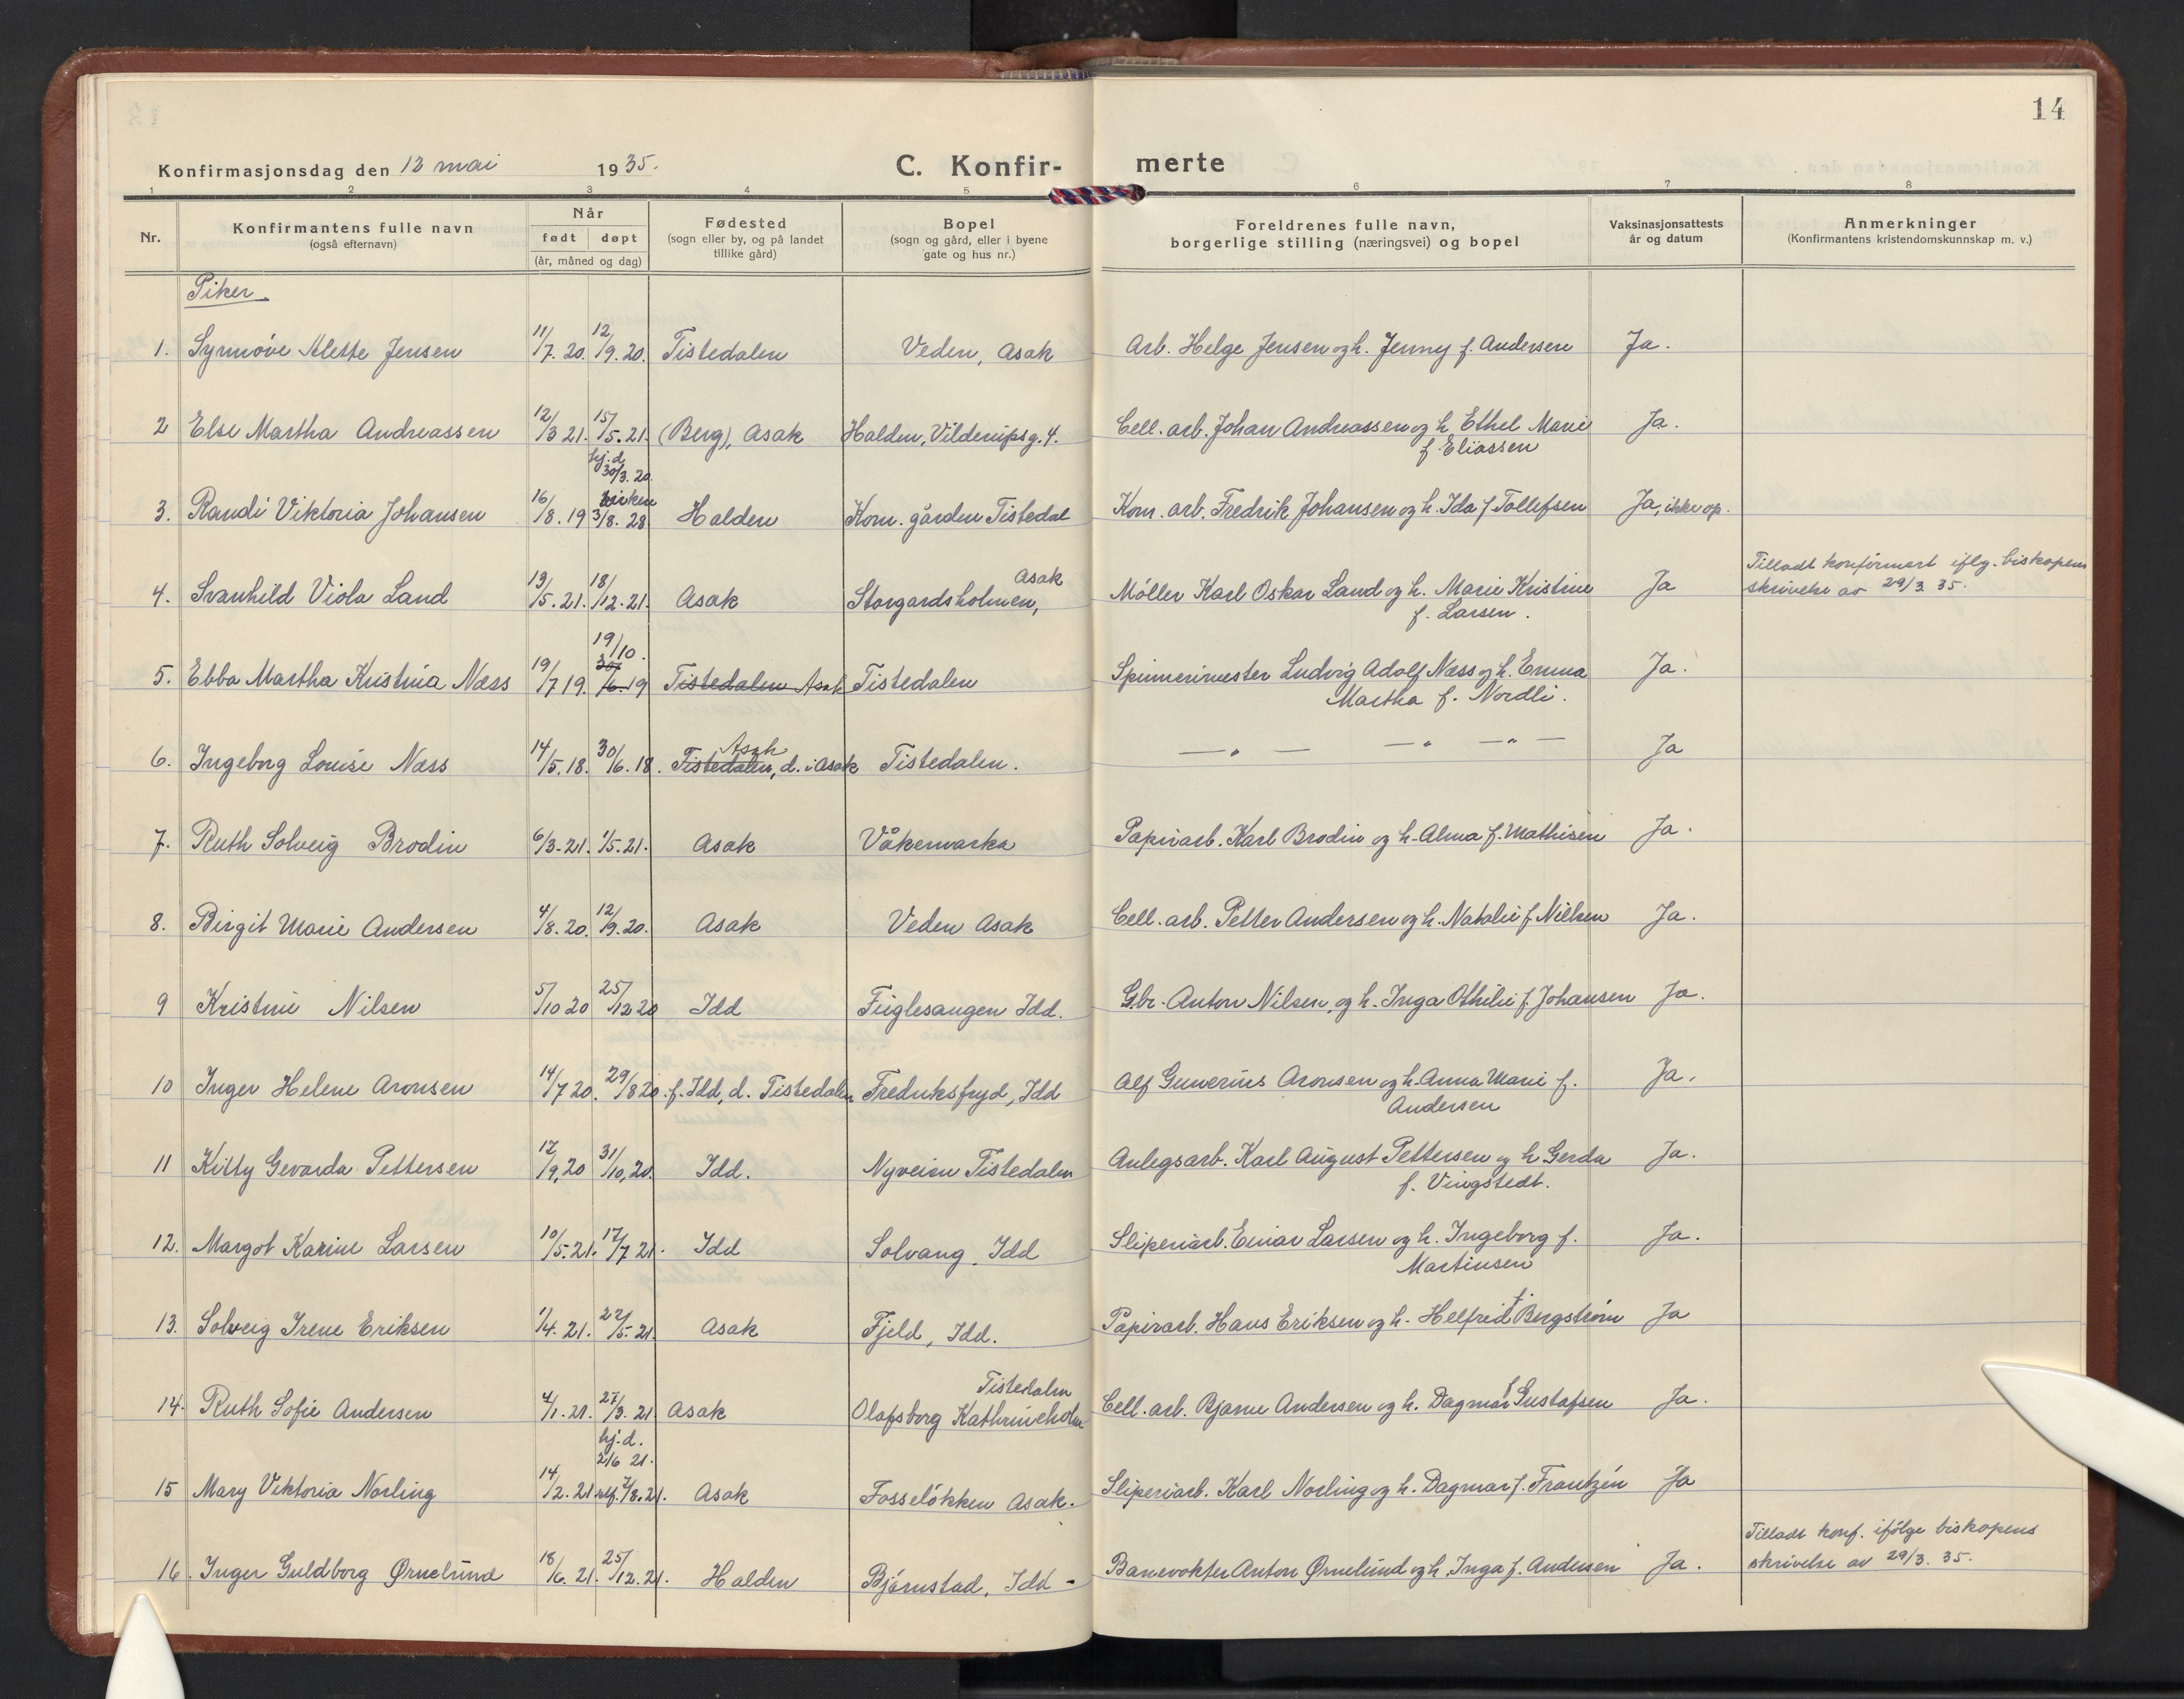 14
Konfirmasjonsdag den 12 mai 1935.
C. Konfir- merte
1 2 3 4 5 6 7 8
Nr.
Konfirmantens fulle navn
(også efternavn)
Når
født døpt
(år, måned og dag)
Fødested
(sogn eller by, og på landet
tillike gård)
Bopel
(sogn og gård, eller i byene
gate og hus nr.)
Foreldrenes fulle navn,
borgerlige stilling (næringsvei) og bopel
Vaksinasjonsattests
år og datum
Anmerkninger
(Konfirmantens kristendomskunnskap m. v.)
Piker
1. Synnöve Alette Jensen 11/7. 20. 12/9. 20. Tistedalen Veden, Asak Arb. Helge Jensen og h. Jenny f. Andersen Ja.
2 Else Martha Andreassen 12/3 21. 15/5. 21. (Berg), Asak Halden, Vilderupsg. 4. Cell. arb. Johan Andreassen og h. Ethel Marie Ja.
f. Eliassen
hj. d
30/3. 20.
kirken
3. Randi Viktoria Johansen 16/8. 19 3/8. 28 Halden Kom. gården Tistedal Kom. arb. Fredrik Johansen og h. Ida f. Tollefsen Ja, ikke op.
Tilladt konfirmert iflg. biskopens
Asak
4. Svanhild Viola Land 13/5. 21. 18/12. 21. Asak Storgardsholmen, Möller Karl Oskar Land og h. Marie Kristine Ja skrivelse av 29/3 35.
f. Larsen.
19/10.
5. Ebba Martha Kristina Næss 19/7 19. 30/6. 19 Tistedalen Asak Tistedalen Spinnerimester Ludvig Adolf Næss og h. Emma Ja.
Martha f. Nordli.
Asak
6. Ingeborg Louise Næss 14/5. 18. 30/6. 18. Tistedalen, d. i Asak Tistedalen. — „ — — „ — „ — Ja
7. Ruth Solveig Brodin 6/3. 21. 1/5. 21. Asak Våkemarka Papirarb. Karl Brodin og h. Alma f. Mathisen Ja.
8. Birgit Marie Andersen 4/8. 20. 12/9. 20. Asak Veden Asak Cell. arb. Petter Andersen og h. Natalie f. Nilsen Ja.
9 Kristine Nilsen 5/10 20 25/12 20 Idd Fuglesangen Idd. Gbr. Anton Nilsen, og h. Inga Othilie f. Johansen Ja.
10 Inger Helene Aronsen 14/7 20. 29/8 20. f. Idd, d. Tistedalen Fredriksfryd, Idd Alf Gunerius Aronsen og h. Anna Marie f. Ja.
Andersen
11 Kitty Gevarda Pettersen 12/9, 20 31/10, 20. Idd. Nyveien Tistedalen Anlegsarb. Karl August Pettersen og h Gerda Ja.
f. Vingstedt.
12. Margot Karine Larsen 10/5. 21. 17/7 21. Idd Solvang, Idd Sliperiarb. Einar Larsen og h. Ingeborg f. Ja.
Martinsen
13. Solveig Irene Eriksen 1/4. 21. 22/5. 21 Asak Fjeld, Idd. Papirarb. Hans Eriksen og h. Helfred f. Bergström Ja
Tistedalen
14. Ruth Sofie Andersen 4/1. 21. 27/3. 21 Asak Olafsborg Kathrineholm Cell. arb. Bjarne Andersen og h. Dagmar f Gustafsen Ja.
hj. d.
2/6 21.
15 Mary Viktoria Norling 14/2. 21 7/8. 21. Asak Fosselökken Asak. Sliperiarb. Karl Norling og h. Dagmar f. Frantzén Ja
Tilladt konf. ifölge biskopens
16. Inger Guldborg Ørnelund 18/6. 21. 25/12. 21. Halden Björnstad, Idd - Banevokter Anton Ørnelund og h. Inga f. Andersen Ja. skrivelse av 29/3. 35.